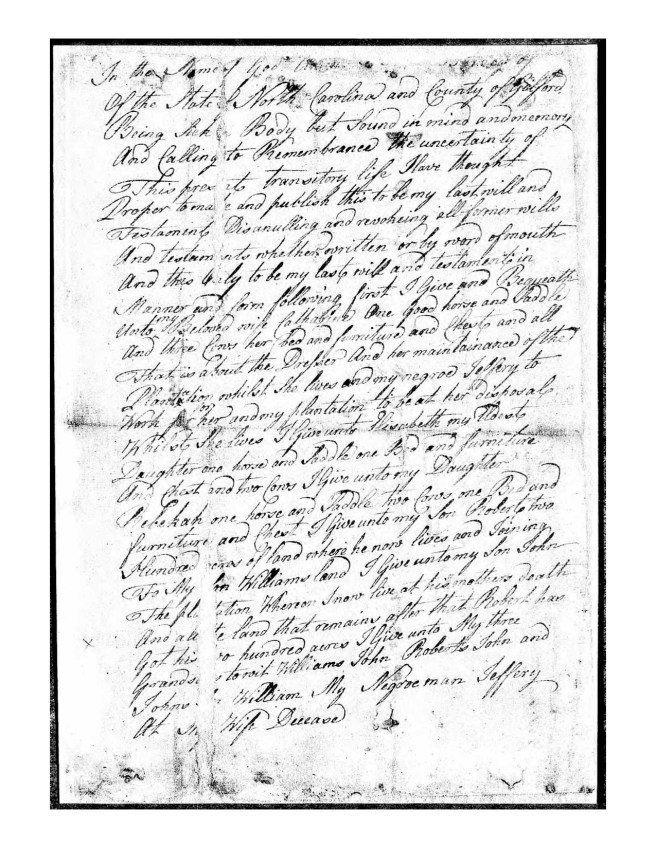 In the Name of God
Of the State North Carolina and County of Guilford
Being Sick Body but Sound in mind and memory
And Calling to Remembrance the uncertainty of
This pres to transitory life Have thought
Proper to ma e and publish this to be my last will and
Testament Disanulling and revokeing all former wills
And testam nts whether written or by word of mouth
And this only to be my last will and testament in
Manner and form following first I Give and Bequeath
Unto my Beloved wife Catharine One Good horse and Saddle
And three Cows her bed and furniture and Chest and all
That is about the Dresser And her maintainance of the
Plantation whilst She lives and my negroe Jeffery to
Work for her and my plantation to be at her disposal
Whilst She lives I Give unto Elisabeth my Eldest
Daughter one horse and Saddle one Bed and furniture
And Chest and two Cows I Give unto my Daughter
Rebekah one horse and Saddle two Cows one Bed and
furniture and Chest I Give unto my Son Robert two
Hundred cres of land where he now lives and Joining
To My on Williams land I Give unto my Son John
The pl tation Whereon I now live at his mothers death
And all e land that remains after that Robert has
Got his o hundred acres I Give unto My three
Grands to wit Williams John Roberts John and
Johns William My Negroe man Jeffery
At my Wifs Decease